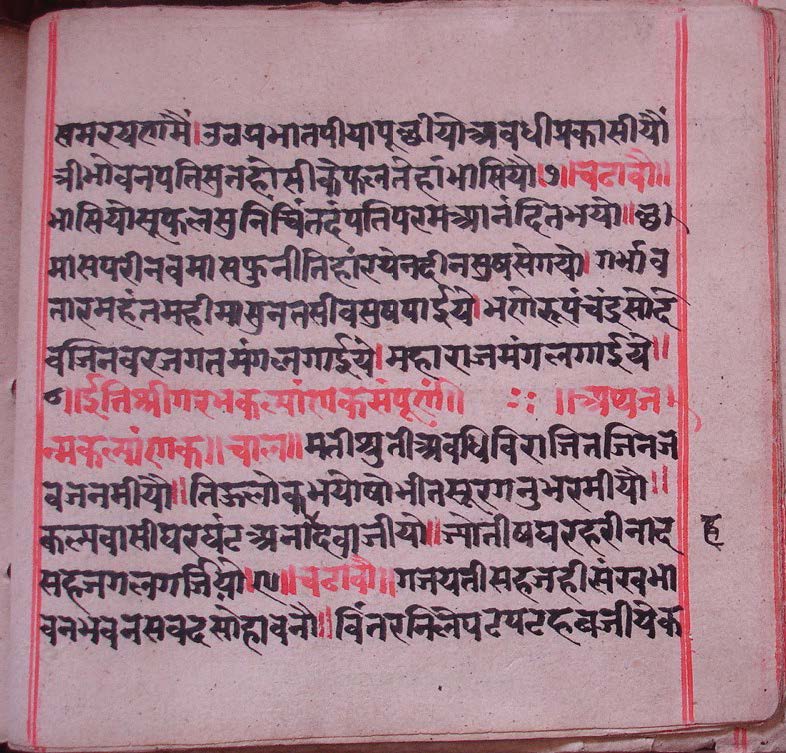 समरयणमैं। उवप्रभातपीयापूछीयोअवधीप्रकासीयौं
त्रीभोवनपतिसुतहोसीकेफलतेहांभासियौ७॥चढावौ॥
भासियोसूफलसुनिर्चिंतदंपतिपरमआनंदितभयो॥छ।
मासपरीनवमासफुनीतिहांरयेनदीनसुषसेगयो। गर्भाव
तारमहंतमहीमासुनतसीवसुषपाईये। भणेरूपचंदुसोदे
वजिनवरजगतमंगलगाईये। महाराजमंगलगाईये॥
८॥ईतिश्रीगरभकल्यांणकसंपूर्णं॥ ॥अथजन
न्मकल्यांणाक॥चाल॥मतीश्रुतीअवधिविराजितजिनजे
वजनमीयौ॥तिऊलोकभयोषोभीतसूरगनुभरमीयौ॥
कल्पवासीघरघंटअनादेवाजीयो॥जोतीषघरहरीनाद ह
सहजगलगर्जियो।ए॥चढावौ॥गजयतीसहजहीसंखभा
वनभवनसवदसोहावनौ॥विंतरनिलेपटपटहवजीयेक